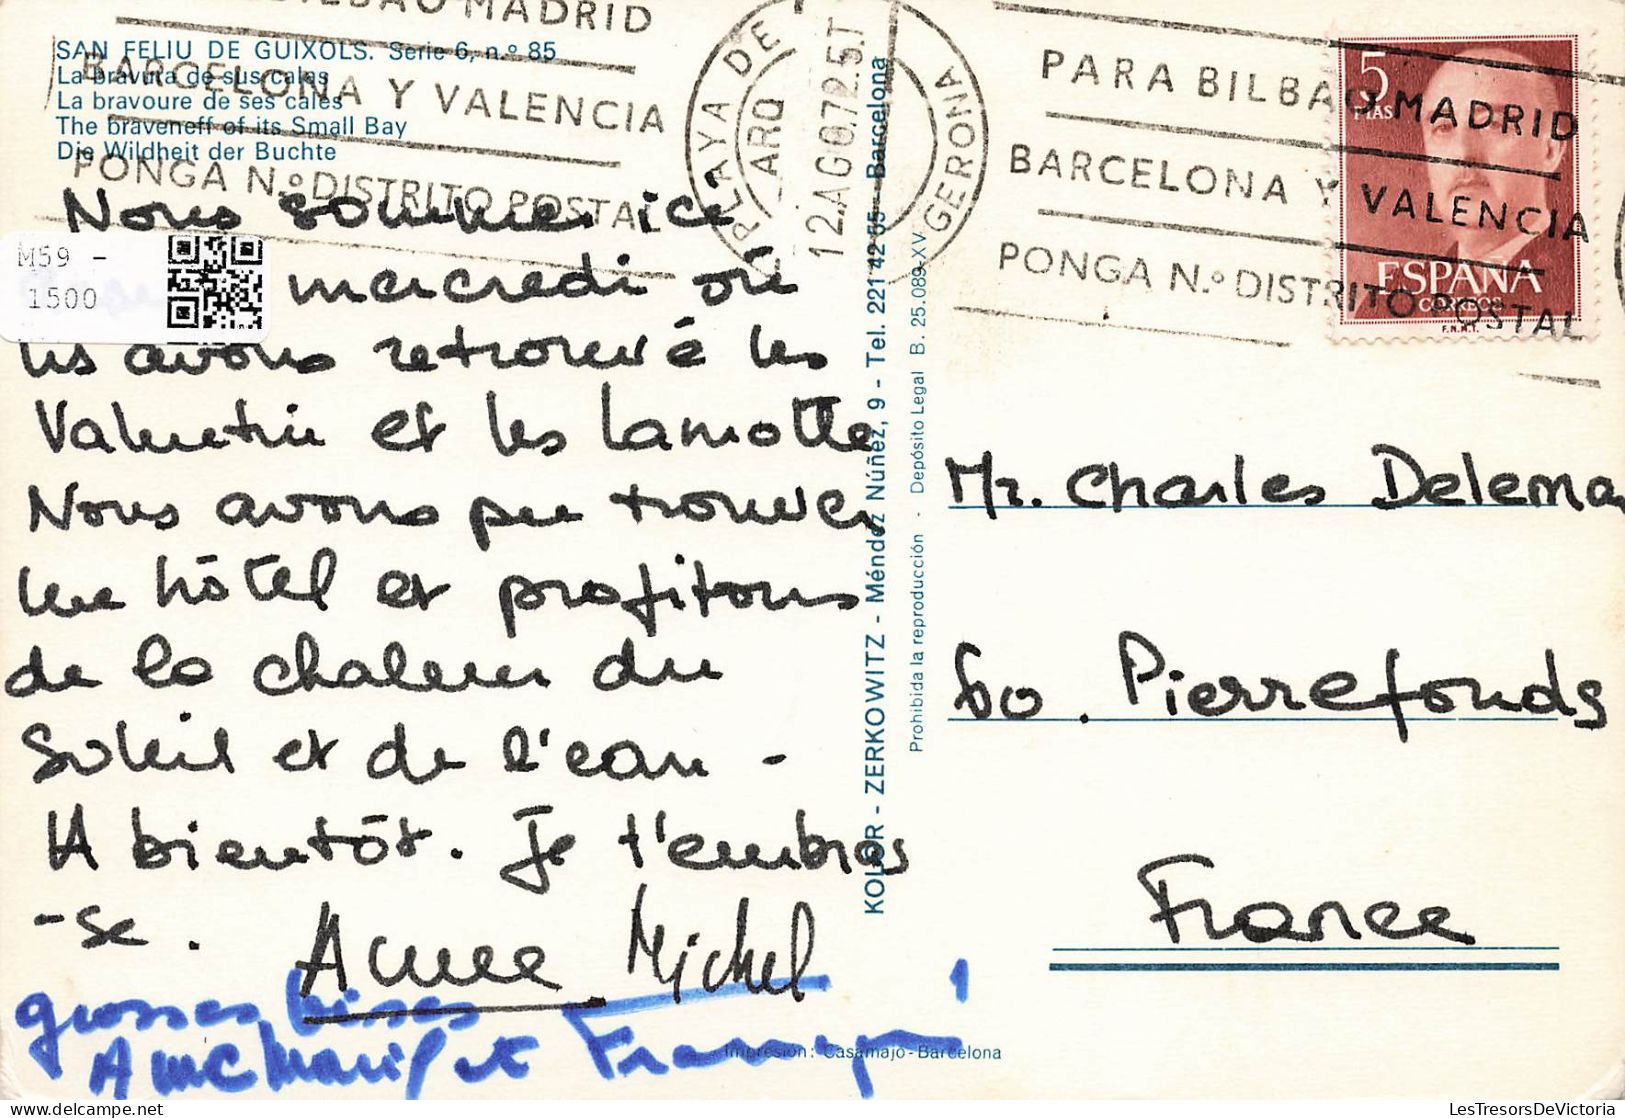 BILBAO MADRID
BARCELONA Y VALENCIA
PONGA N.º DISTRITO POSTAL
SAN FELIU DE GUIXOLS. Serie 6, n.º 85
La bravura de sus calas
La bravoure de ses cales
The braveneff of its Small Bay
Die Wildheit der Buchte
M59 -
1500
Nous sommes ici
mercredi où
ns avons retrouvé les
Valentin et les Lamotte
Nous avons pu trouver
un hôtel et profitons
de la chaleur du
soleil et de l'eau -
A bientôt. Je t'embras
-se. Anne Michel
grosses bises
Anne Marie et
PLAYA DE ARO
12.AGO.72.5T
GERONA
PARA BILBAO MADRID
BARCELONA Y VALENCIA
PONGA N.º DISTRITO POSTAL
5
PTAS
ESPAÑA
CORREOS
F.N.M.T.
KOLOR - ZERKOWITZ - Méndez Núñez, 9 - Tel. 221 42 55 - Barcelona
Prohibida la reproducción - Depósito Legal B. 25.089-XV
Mr. Charles Delema
60. Pierrefonds
France
Impresión: Casamajó-Barcelona
LesTresorsDeVictoria